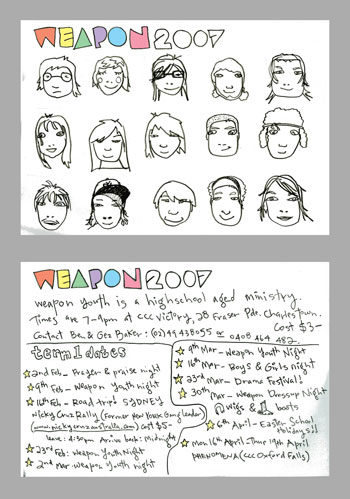 WEAPON 2007
WEAPON 2007
weapon youth is a highschool aged ministry.
Times are 7-9pm at CCC Victory, 28 Fraser Pde. Charlestown.
Cost $3-
Contact Ben & Gez Baker: (02) 49 438055 or 0408 464 482.
term 1 dates
2nd Feb - Prayer & praise night
9th Feb - Weapon Youth night
16th Feb - Road trip! SYDNEY
Nicky Cruz Rally (Former New York Gang leader)
(www.nickycruzaustralia.com) Cost $5-
leave: 4:30pm Arrive back: Midnight
23rd Feb: Weapon Youth Night
2nd Mar - Weapon Youth night
9th Mar - Weapon Youth Night
16th Mar - Boys & Girls night
23rd Mar - Drama Festival!
30th Mar - Weapon Dressup Night
wigs & boots
6th April - Easter School
Holidays!!
Mon 16th April - Thur 19th April
PHENOMENA (CCC Oxford Falls)